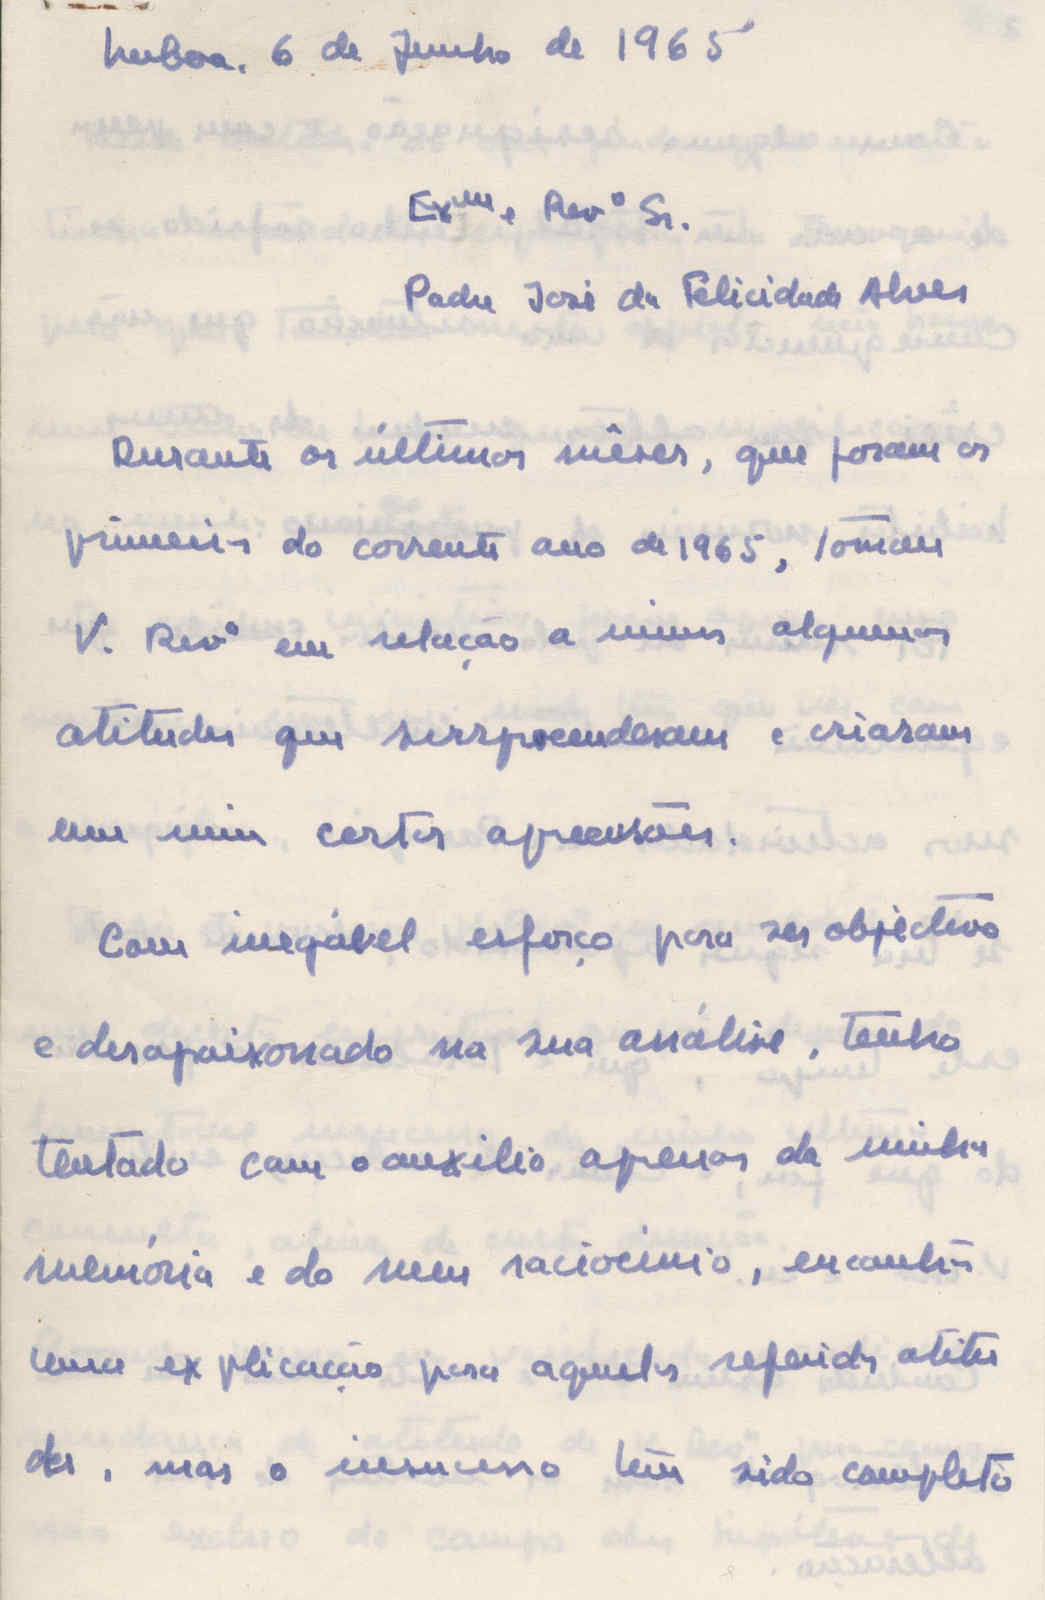 Lisboa, 6 de Junho de 1965
Exmº e Revº Sr.
Padre José da Felicidade Alves
Durante os últimos mêses, que foram os
primeiros do corrente ano de 1965, tomou
V. Revº em relação a mim algumas
atitudes que surrpreenderam e criaram
em mim certas apreensões.
Com inegável esforço para ser objectivo
e desapaixonado na sua análise, tenho
tentado com o auxilio apenas da minha
memória e do meu raciocinio, encontrar
uma explicação para aquelas referidas atitu
des, mas o insucesso tem sido completo